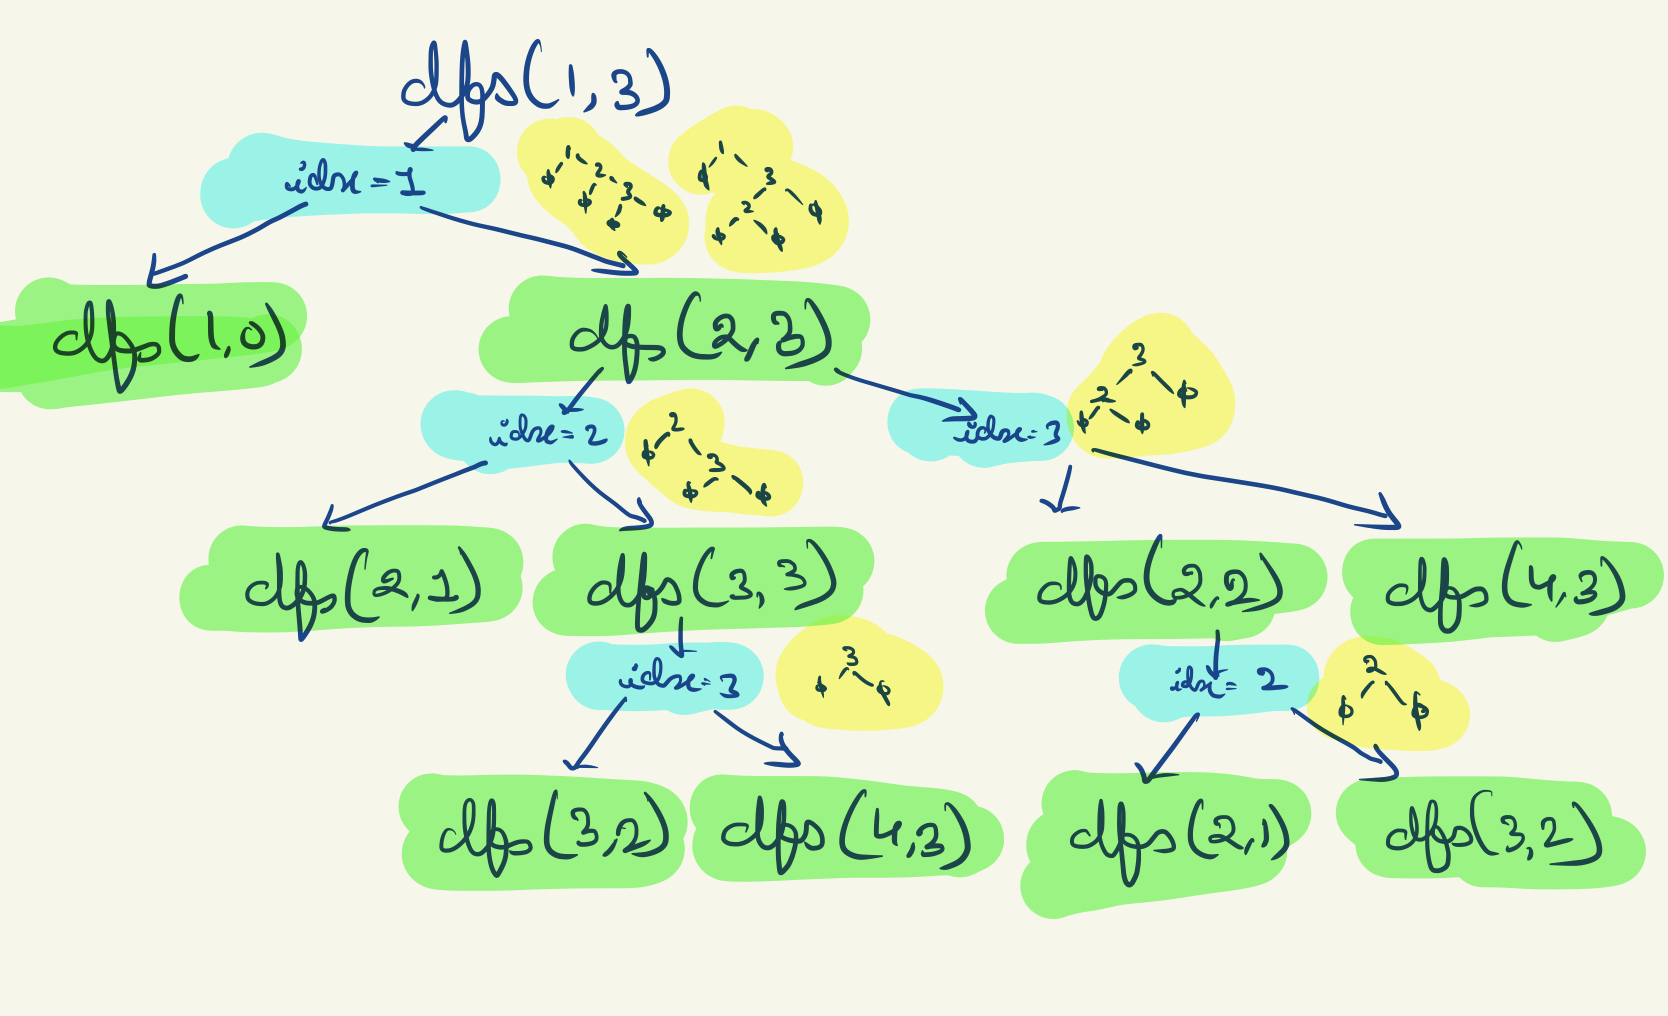 dfs(1,3)
idx=1
1
ϕ 2
ϕ 3
ϕ ϕ
1
ϕ 3
2 ϕ
ϕ ϕ
dfs(1,0)
dfs(2,3)
idx=2
2
ϕ 3
ϕ ϕ
idx=3
3
2 ϕ
ϕ ϕ
dfs(2,1)
dfs(3,3)
dfs(2,2)
dfs(4,3)
idx=3
3
ϕ ϕ
idx=2
2
ϕ ϕ
dfs(3,2)
dfs(4,3)
dfs(2,1)
dfs(3,2)